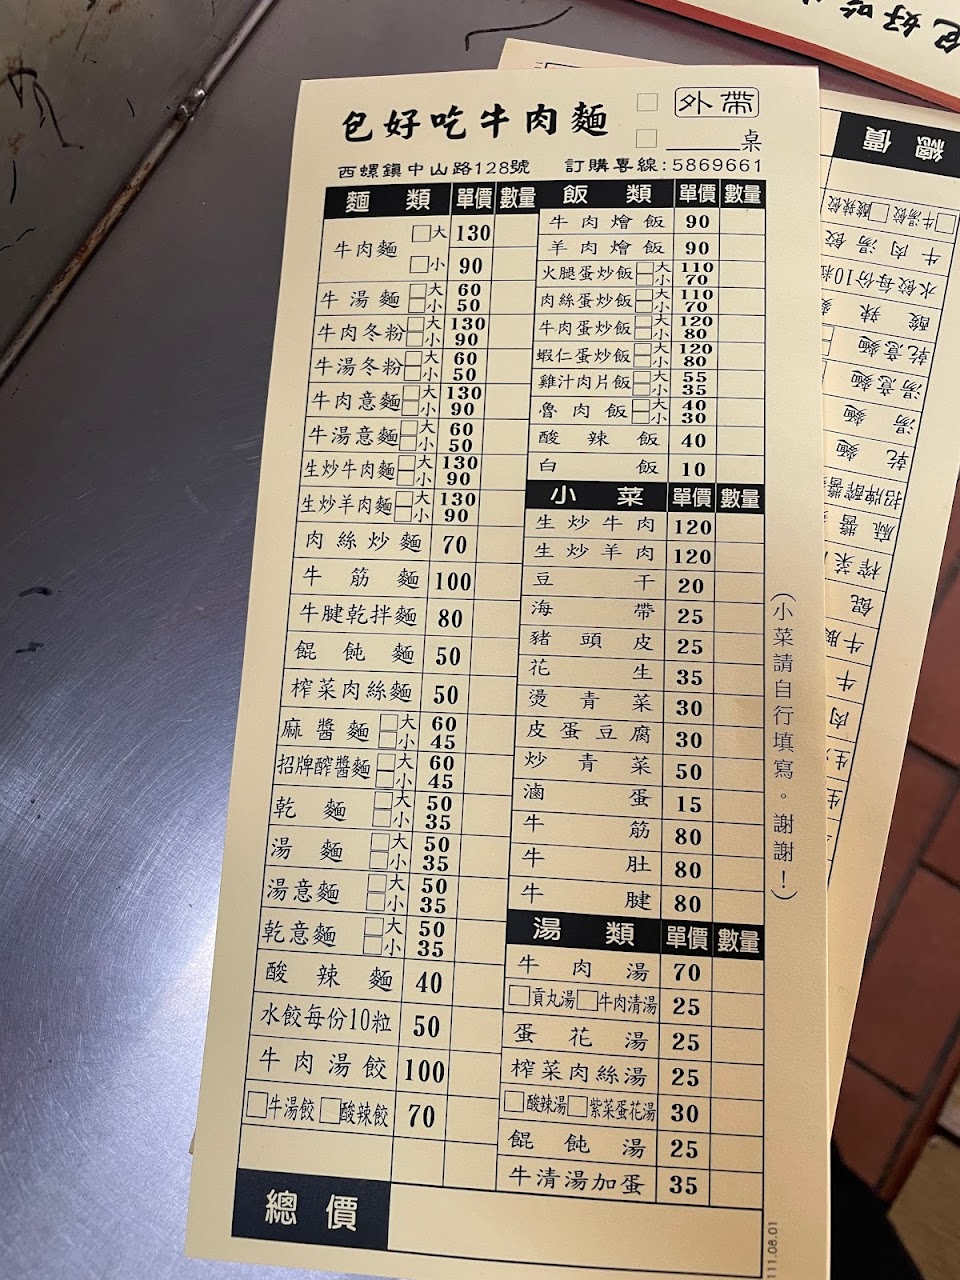 包好吃牛肉麵
外帶
桌
西螺鎮中山路128號 訂購專線:5869661
麵類 單價 數量
牛肉麵 大 130
小 90
牛湯麵 大 60
小 50
牛肉冬粉 大 130
小 90
牛湯冬粉 大 60
小 50
牛肉意麵 大 130
小 90
牛湯意麵 大 60
小 50
生炒牛肉麵 大 130
小 90
生炒羊肉麵 大 130
小 90
肉絲炒麵 70
牛筋麵 100
牛腱乾拌麵 80
餛飩麵 50
榨菜肉絲麵 50
麻醬麵 大 60
小 45
招牌醡醬麵 大 60
小 45
乾麵 大 50
小 35
湯麵 大 50
小 35
湯意麵 大 50
小 35
乾意麵 大 50
小 35
酸辣麵 40
水餃每份10粒 50
牛肉湯餃 100
牛湯餃 酸辣餃 70
總價
飯類 單價 數量
牛肉燴飯 90
羊肉燴飯 90
火腿蛋炒飯 大 110
小 70
肉絲蛋炒飯 大 110
小 70
牛肉蛋炒飯 大 120
小 80
蝦仁蛋炒飯 大 120
小 80
雞汁肉片飯 大 55
小 35
魯肉飯 大 40
小 30
酸辣飯 40
白飯 10
小菜 單價 數量
生炒牛肉 120
生炒羊肉 120
豆干 20
海帶 25
豬頭皮 25
花生 35
燙青菜 30
皮蛋豆腐 30
炒青菜 50
滷蛋 15
牛筋 80
牛肚 80
牛腱 80
湯類 單價 數量
牛肉湯 70
貢丸湯 牛肉清湯 25
蛋花湯 25
榨菜肉絲湯 25
酸辣湯 紫菜蛋花湯 30
餛飩湯 25
牛清湯加蛋 35
(小菜請自行填寫。謝謝!)
111.08.01
包好吃
總價
牛湯餃 酸辣餃
牛肉湯餃
水餃每份10粒
酸辣
乾意麵
湯意麵
湯麵
乾麵
招牌醡醬
麻醬
榨菜
餛
牛腱
牛
肉
生
生